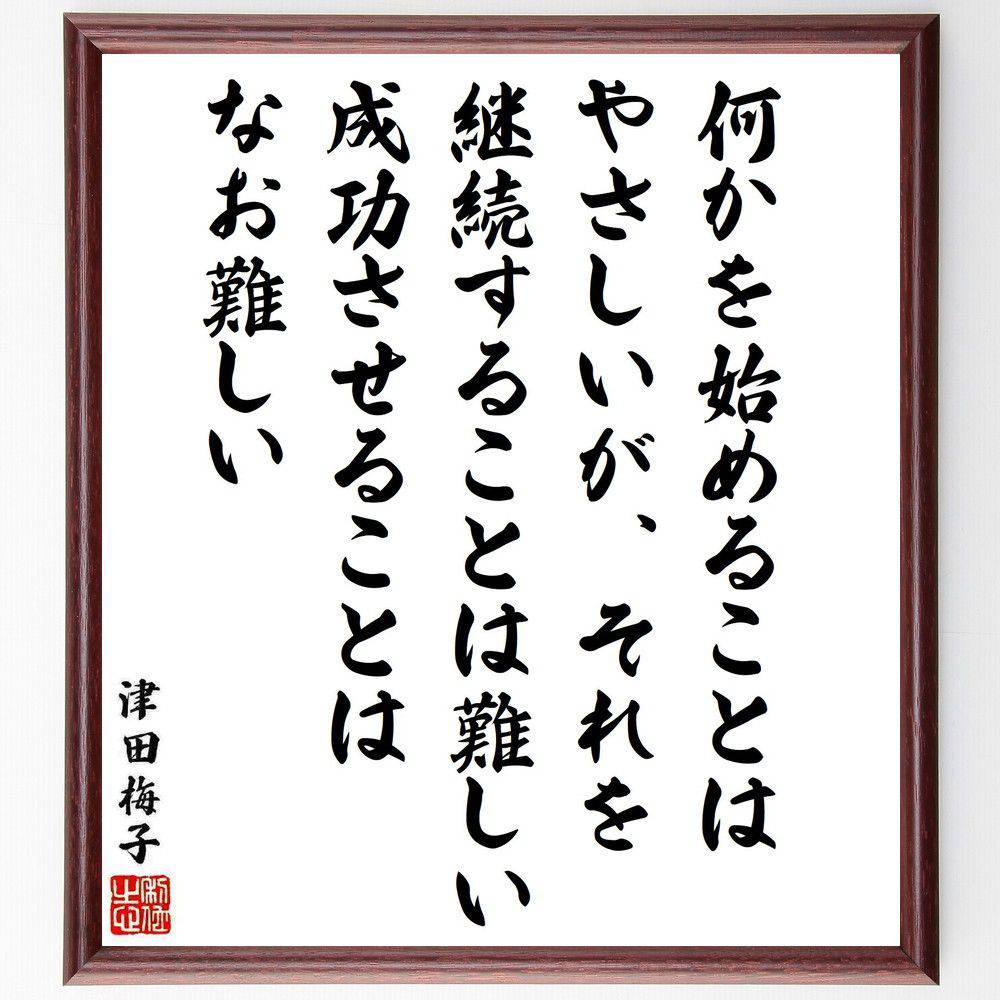 何かを始めることは
やさしいが、それを
継続することは難しい
成功させることは
なお難しい
津田梅子